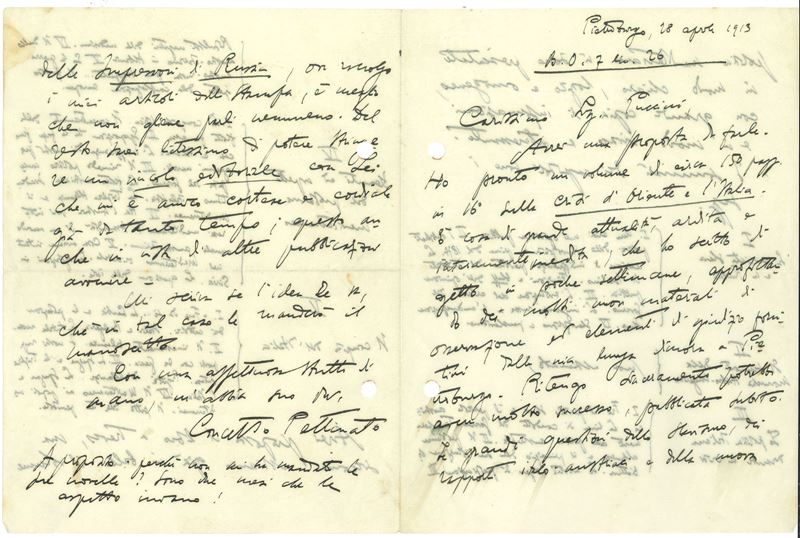 Pietroburgo, 28 aprile 1913
B. O. 7 26
Carissimo Sig. Puccini,
Avrei una proposta da farle.
Ho pronto un volume di circa 150 pagg.
in 16 sulla crisi d'Oriente e l'Italia.
È cosa di grande attualità, ardita e
interamente inedita, che ho scritto di
getto in poche settimane, approfittan-
do dei molti miei materiali di
osservazione ed elementi di giudizio forni-
timi dalla mia lunga dimora a Pie-
troburgo. Ritengo sicuramente potrebbe
avere molto successo, pubblicata subito.
Le grandi questioni dello slavismo, dei
rapporti italo-austriaci e della nuova
delle Impressioni di Russia, ove raccolgo
i miei articoli della Stampa, è meglio
che non gliene parli nemmeno. Del
resto sarei lietissimo di potere strin-
re un vincolo editoriale con Lei
che mi è amico cortese e cordiale
già da tanto tempo; questo an-
che in vista di altre pubblicazioni
avvenire.
Mi scriva se l'idea Le va,
chè in tal caso le manderò il
manoscritto.
Con una affettuosa stretta di
mano, mi abbia suo dev.
Concetto Pettinato
A proposito: perchè non mi ha mandato le
sue novelle? Sono due mesi che le
aspetto invano!